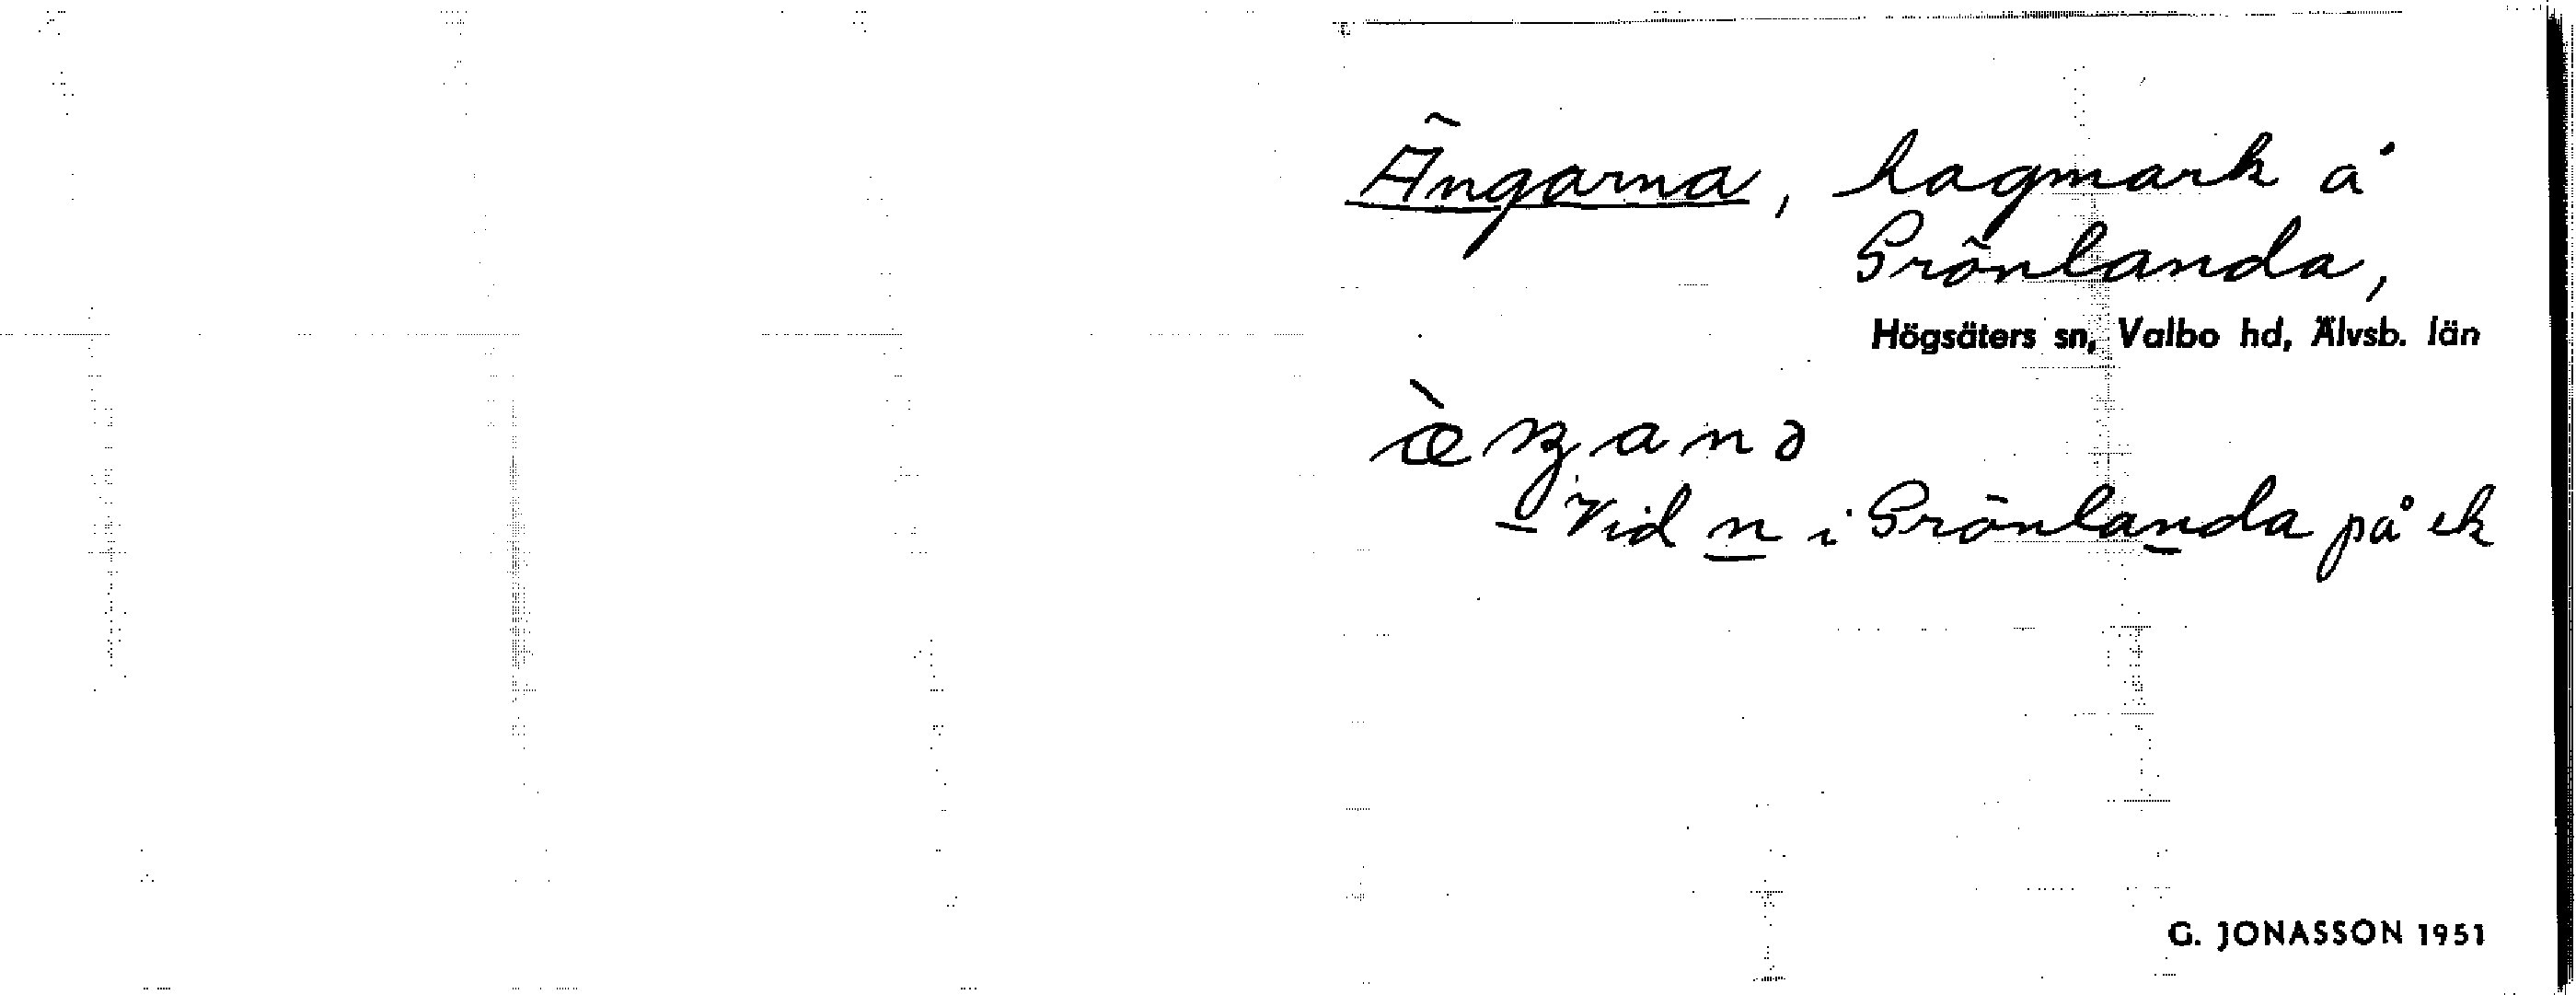 Ängarna, hagmark å
Grönlanda,
Högsäters sn, Valbo hd, Älvsb. län
Vid n i Grönlanda på ek
G. JONASSON 1951